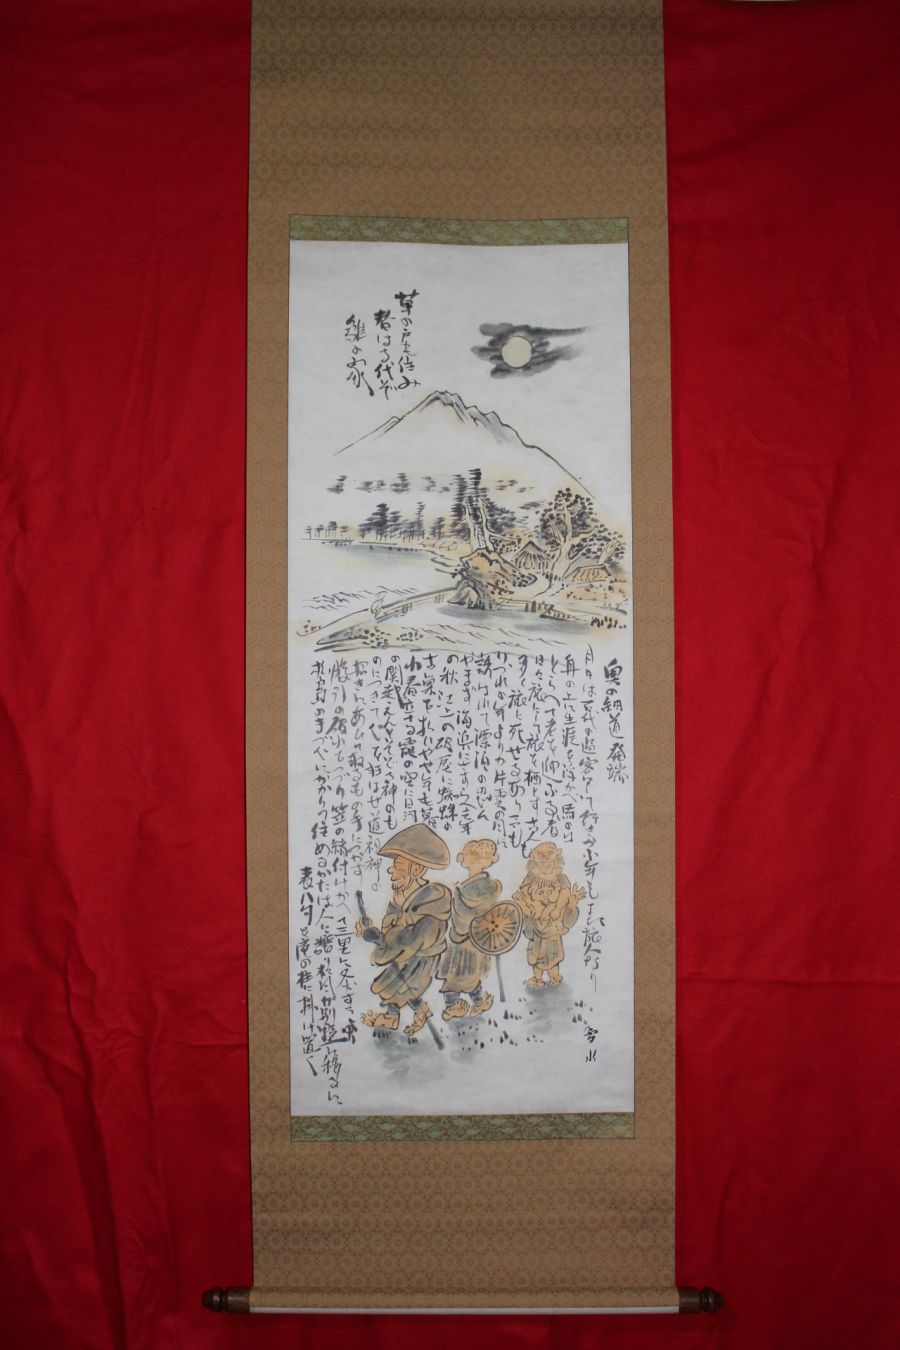 草の戸も住み
替はる代ぞ
雛の家
奥の細道 発端
月日は百代の過客にして行きかふ年もまた旅人なり
舟の上に生涯を浮かべ馬の口
とらへて老を迎ふる者
は日々旅にして旅を栖とす古人
も多く旅に死せるあり予も
いづれの年よりか片雲の風に
誘はれて漂泊の思ひ
やまず海浜にさすらへ去年
の秋江上の破屋に蜘蛛の
古巣を払ひやや年も暮
れ春立てる霞の空に白河
の関越えんとそぞろ神のも
のにつきて心を狂はせ道祖神の
招きにあひて取るもの手につかず
股引の破れをつづり笠の緒付けかへて三里に灸すうるより
松島の月まづ心にかかりて住めるかたは人に譲り杉風が別墅に移るに
表八句を庵の柱に掛け置く
雲水